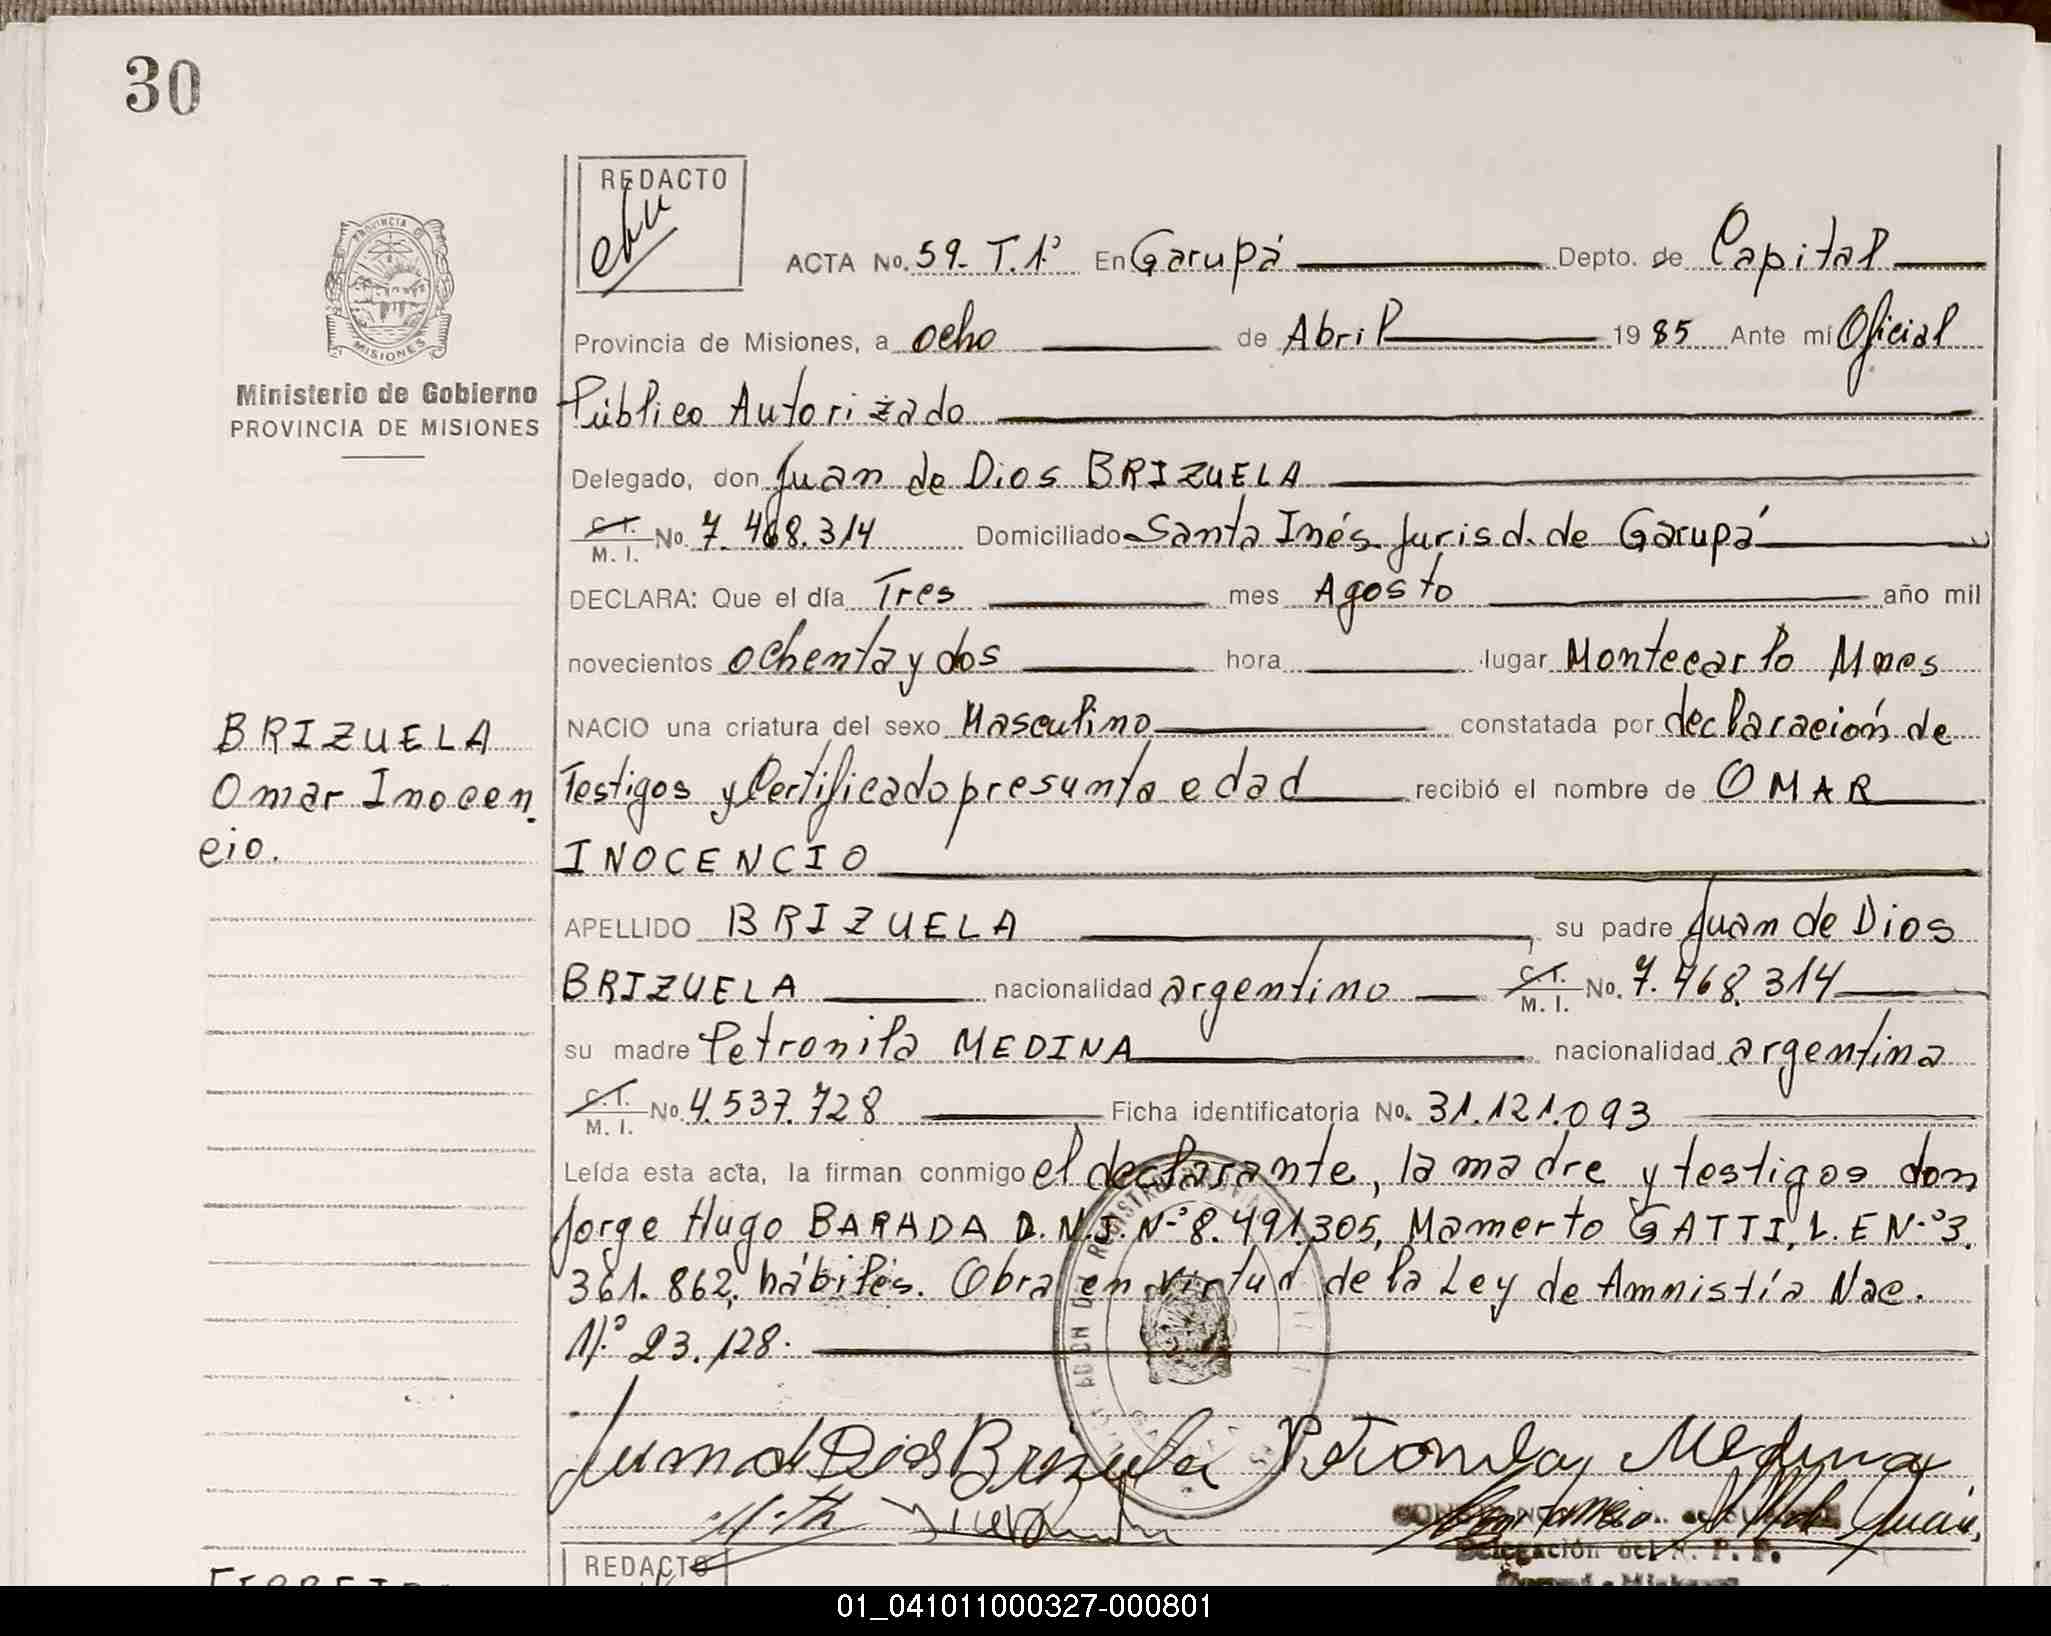 30
REDACTO
PROVINCIA DE
MISIONES
Ministerio de Gobierno
PROVINCIA DE MISIONES
ACTA No. 59- T.1º En Garupá Depto. de Capital
Provincia de Misiones, a ocho de Abril 1985 Ante mi Oficial
Público Autorizado
Delegado, don Juan de Dios BRIZUELA
C.I. M.I. No. 7.468.314 Domiciliado Santa Inés Jurisd. de Garupá
DECLARA: Que el día Tres mes Agosto año mil
novecientos ochenta y dos hora lugar Montecarlo Mnes
NACIO una criatura del sexo Masculino constatada por declaración de
Testigos y Certificado presunta edad recibió el nombre de OMAR
INOCENCIO
BRIZUELA
Omar Inocen
cio.
APELLIDO BRIZUELA su padre Juan de Dios
BRIZUELA nacionalidad argentino C.I. M.I. No. 7.468.314
su madre Petronila MEDINA nacionalidad argentina
C.I. M.I. No. 4.537.728 Ficha identificatoria No. 31.121.093
Leída esta acta, la firman conmigo el declarante, la madre y testigos don
Jorge Hugo BARADA D.N.I. Nº 8.491.305, Mamerto GATTI, L.E Nº 3.
361.862, hábiles. Obra en virtud de la Ley de Amnistía Nac.
Nº 23.128.
Juan de Dios Brizuela Petronila Medina
Delegación del R. P. P.
REDACTO
01_041011000327-000801